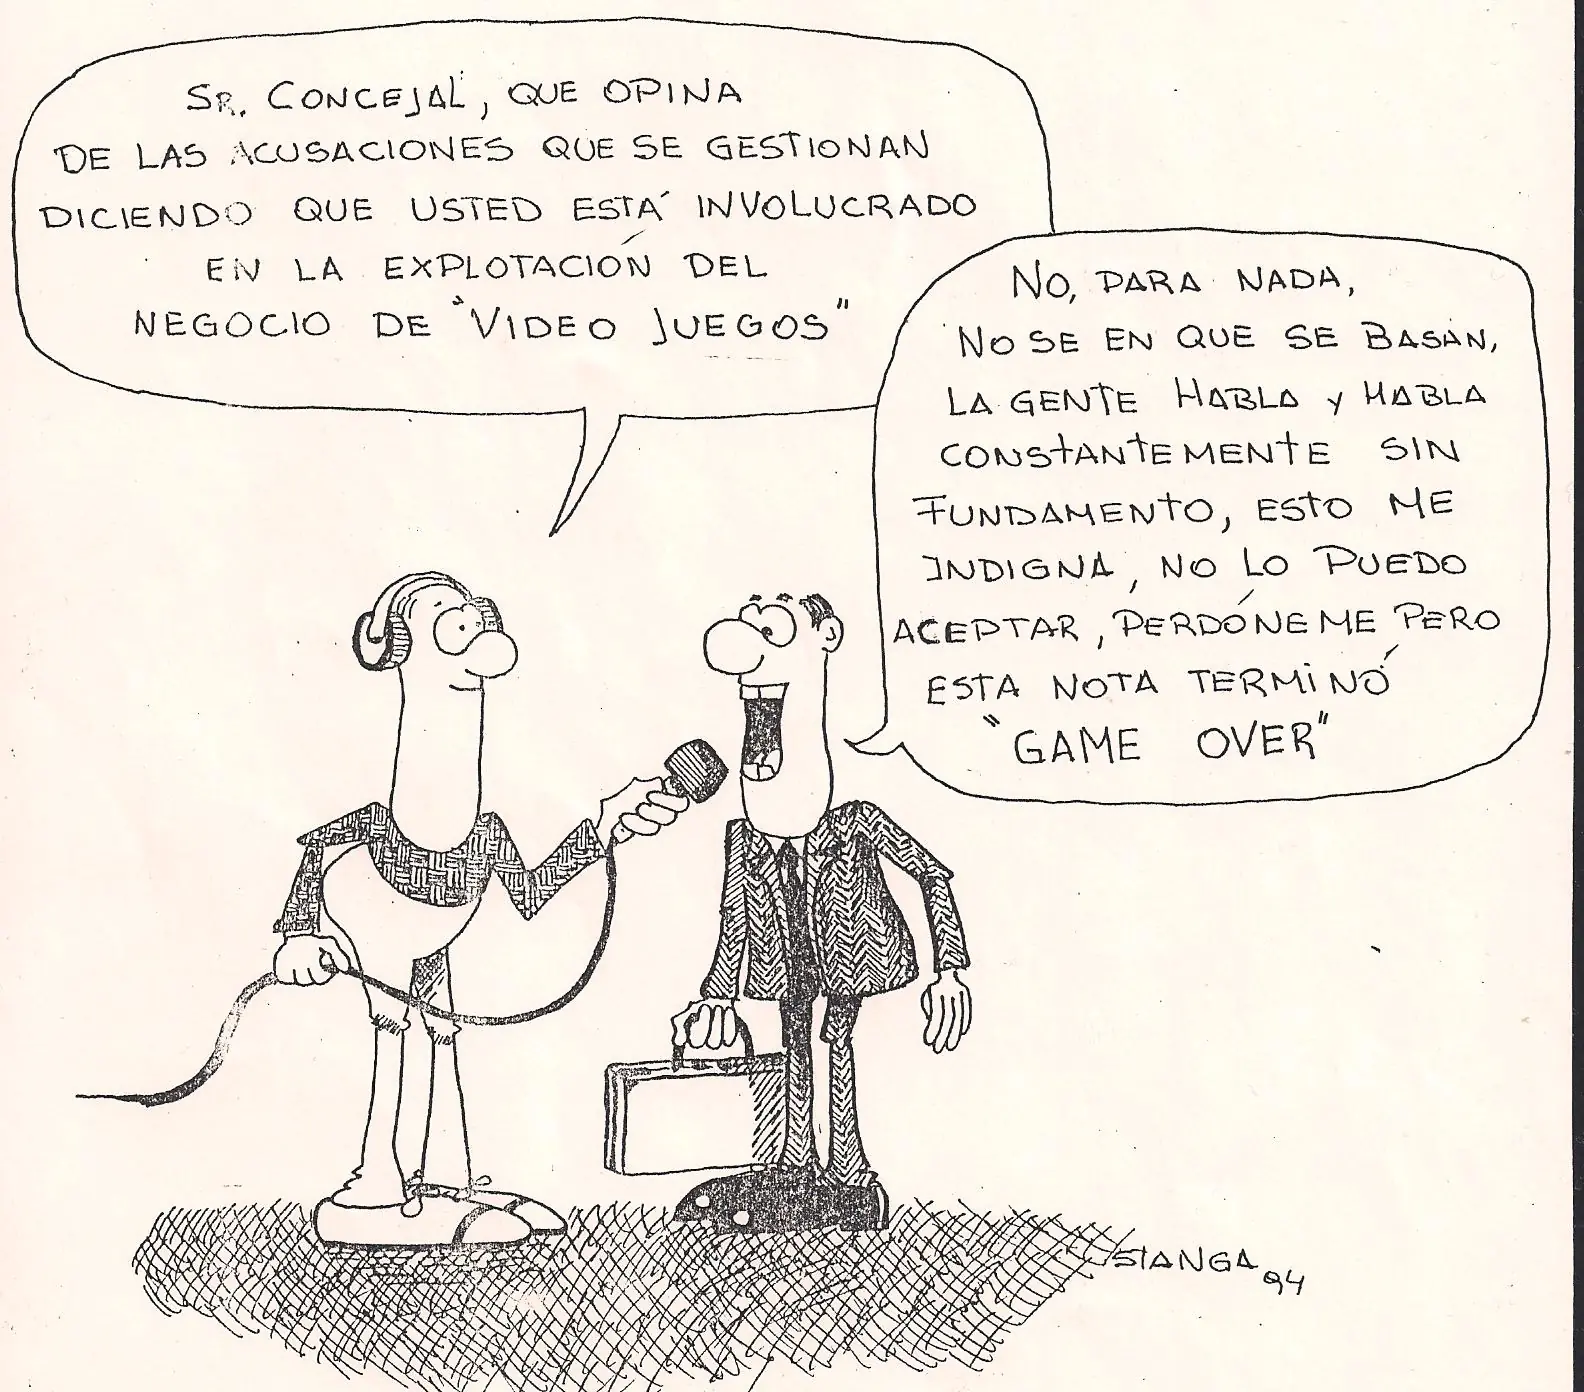 SR. CONCEJAL, QUE OPINA
DE LAS ACUSACIONES QUE SE GESTIONAN
DICIENDO QUE USTED ESTÁ INVOLUCRADO
EN LA EXPLOTACIÓN DEL
NEGOCIO DE "VIDEO JUEGOS"
NO, PARA NADA,
NO SE EN QUE SE BASAN,
LA GENTE HABLA Y HABLA
CONSTANTEMENTE SIN
FUNDAMENTO, ESTO ME
INDIGNA, NO LO PUEDO
ACEPTAR, PERDÓNEME PERO
ESTA NOTA TERMINÓ
"GAME OVER"
STANGA 94